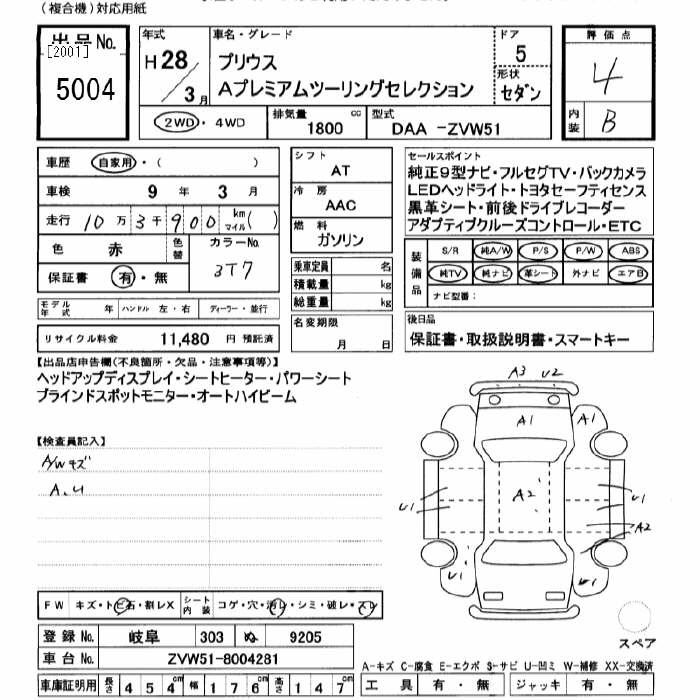 (複合機)対応用紙
出品No.
[2001]
5004
年式
H28/3月
車名・グレード
プリウス
Aプレミアムツーリングセレクション
ドア
5
形状
セダン
評価点
4
内装
B
2WD・4WD
排気量
1800 cc
型式
DAA -ZVW51
車歴 自家用・( )
車検 9年 3月
走行 10万3千900 km マイル( )
色 赤 色替
カラーNo.
3T7
保証書 有・無
モデル年式 年 ハンドル 左・右 ディーラー・並行
リサイクル料金 11,480 円 預託済
シフト
AT
冷房
AAC
燃料
ガソリン
乗車定員 名
積載量 kg
総重量 kg
名変期限
月 日
セールスポイント
純正9型ナビ・フルセグTV・バックカメラ
LEDヘッドライト・トヨタセーフティセンス
黒革シート・前後ドライブレコーダー
アダプティブクルーズコントロール・ETC
装備品
S/R 純A/W P/S P/W ABS
純TV 純ナビ 革シート 外ナビ エアB
ナビ型番:
後日品
保証書・取扱説明書・スマートキー
【出品店申告欄(不良箇所・欠品・注意事項等)】
ヘッドアップディスプレイ・シートヒーター・パワーシート
ブラインドスポットモニター・オートハイビーム
【検査員記入】
A/Wキズ
A、U
A3 U2
A1 A1
A2
U1 U1
A2
U1 U1
スペア
FW キズ・トビ石・割レX シート内装 コゲ・穴・汚レ・シミ・破レ・スレ
登録No. 岐阜 303 ぬ 9205
車台No. ZVW51-8004281
車庫証明用 長さ 454cm 幅 176cm 高さ 147cm
A-キズ C-腐食 E-エクボ S-サビ U-凹ミ W-補修 XX-交換済
工具 有・無 ジャッキ 有・無